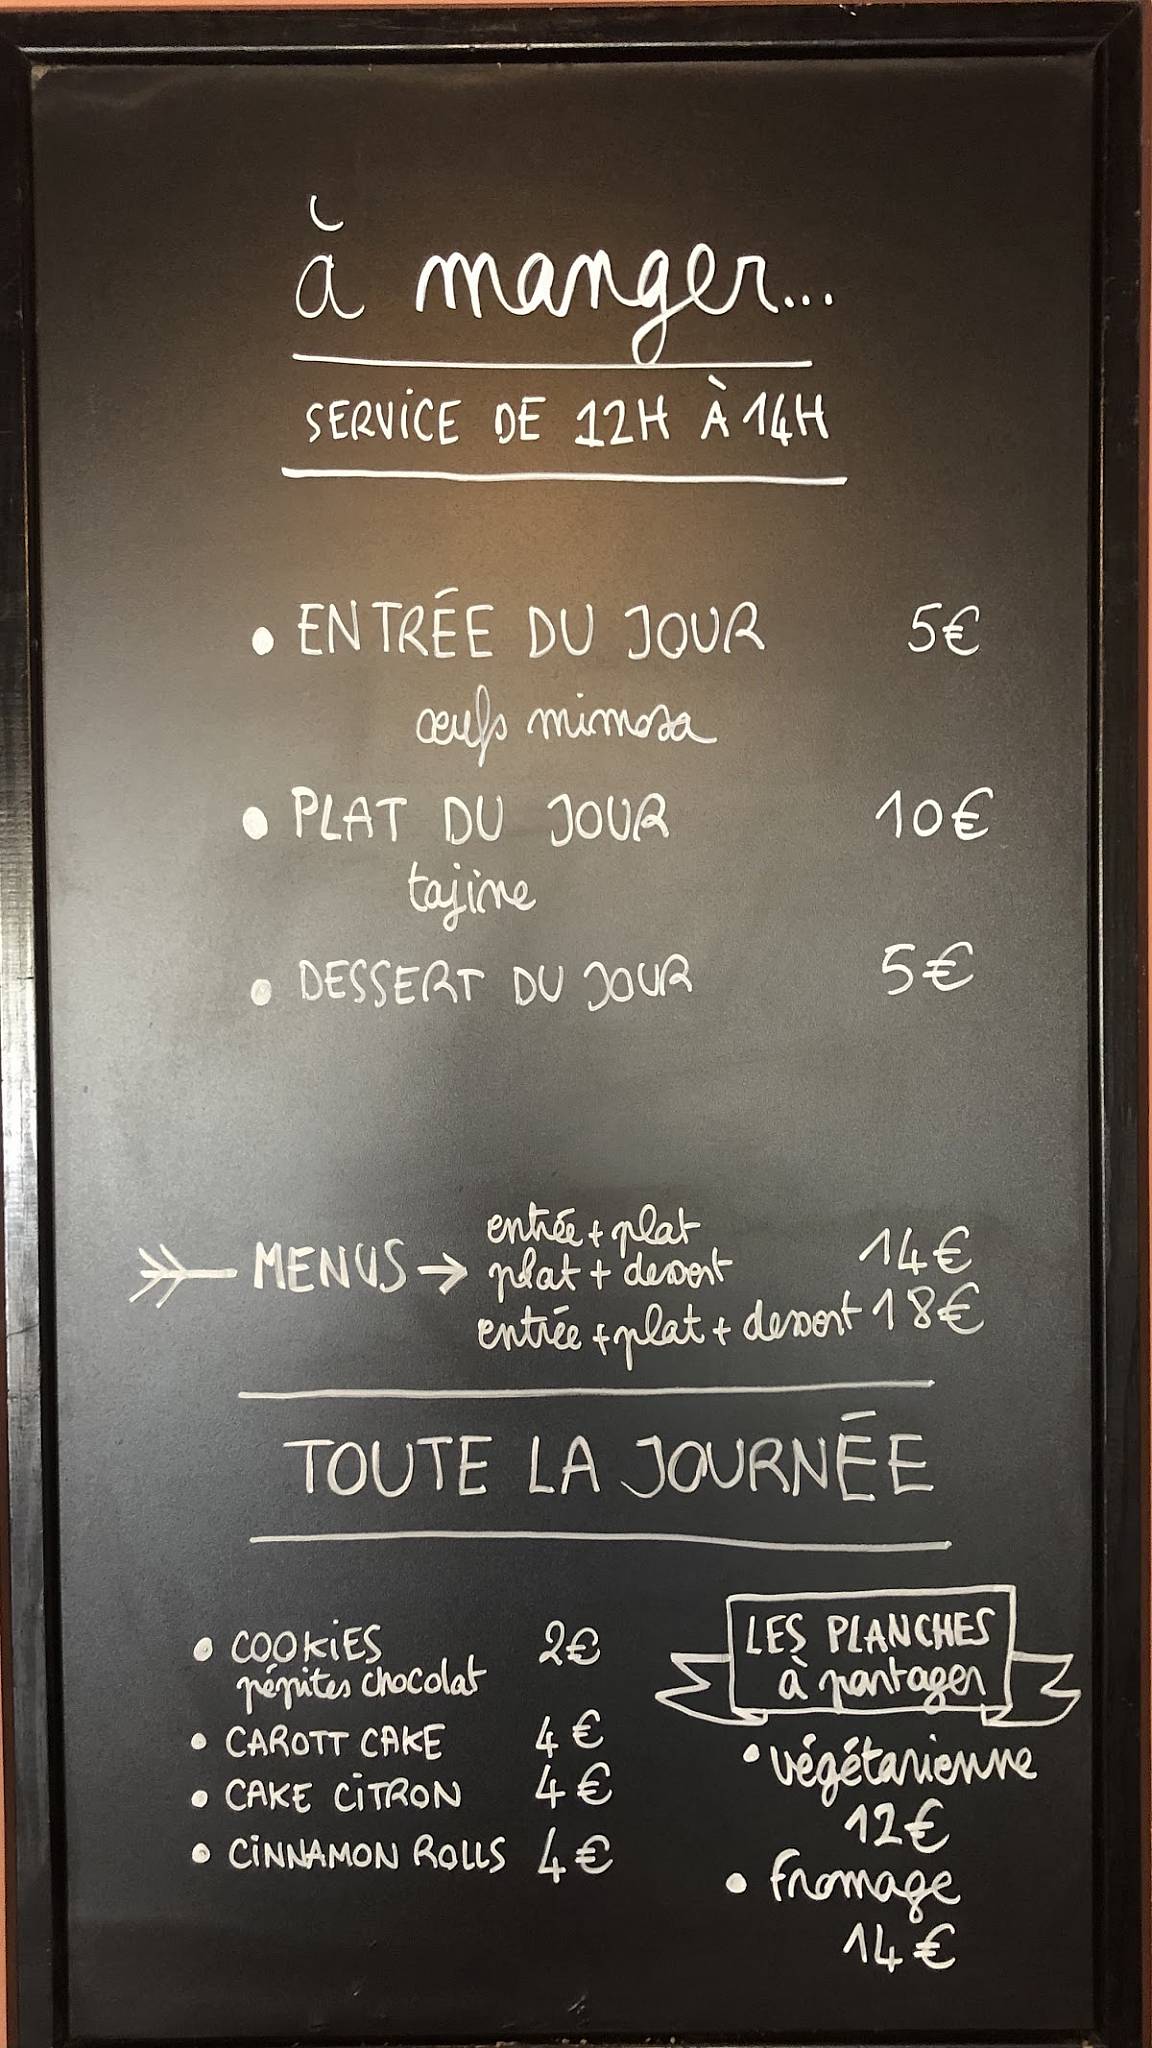 à manger...
SERVICE DE 12H À 14H
• ENTRÉE DU JOUR 5€
œufs mimosa
• PLAT DU JOUR 10€
tajine
• DESSERT DU JOUR 5€
MENUS → entrée + plat
plat + dessert 14€
entrée + plat + dessert 18€
TOUTE LA JOURNÉE
• COOKIES 2€
pépites chocolat
• CAROTT CAKE 4€
• CAKE CITRON 4€
• CINNAMON ROLLS 4€
LES PLANCHES
à partager
• végétarienne
12€
• fromage
14€